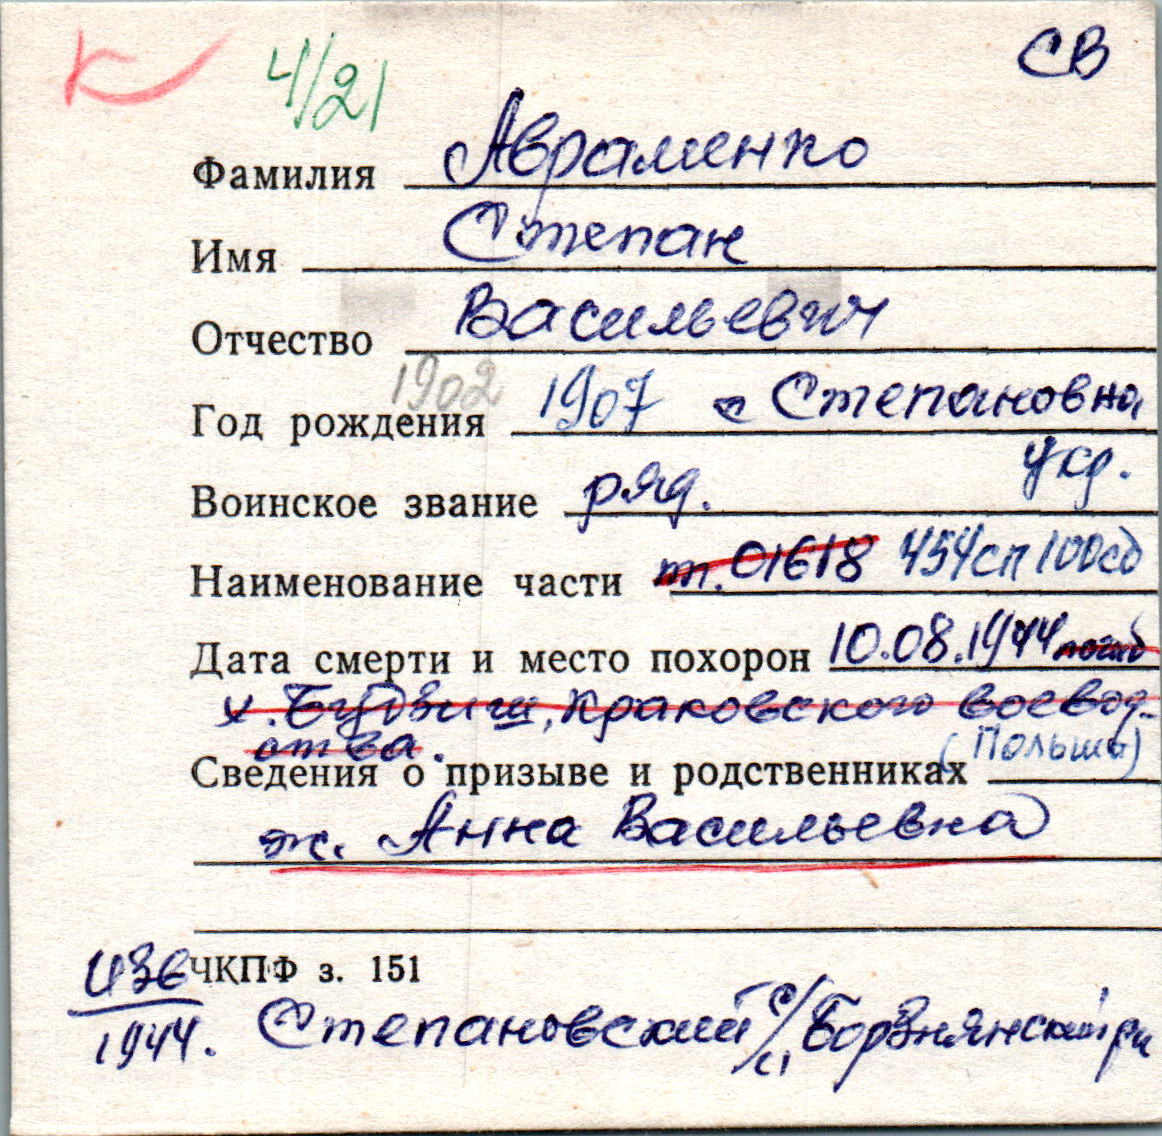 К 4/21 СВ
Фамилия Авраменко
Имя Степан
Отчество Васильевич
1902
Год рождения 1907 с Степановна
укр.
Воинское звание ряд.
Наименование части пп.01618 454сп 100сд
Дата смерти и место похорон 10.08.1944
х. Будзиш, Краковского воевод-
ства. (Польша)
Сведения о призыве и родственниках
ж. Анна Васильевна
ЧКПФ з. 151
изв
1944. Степановский с/с, Борзнянский рн